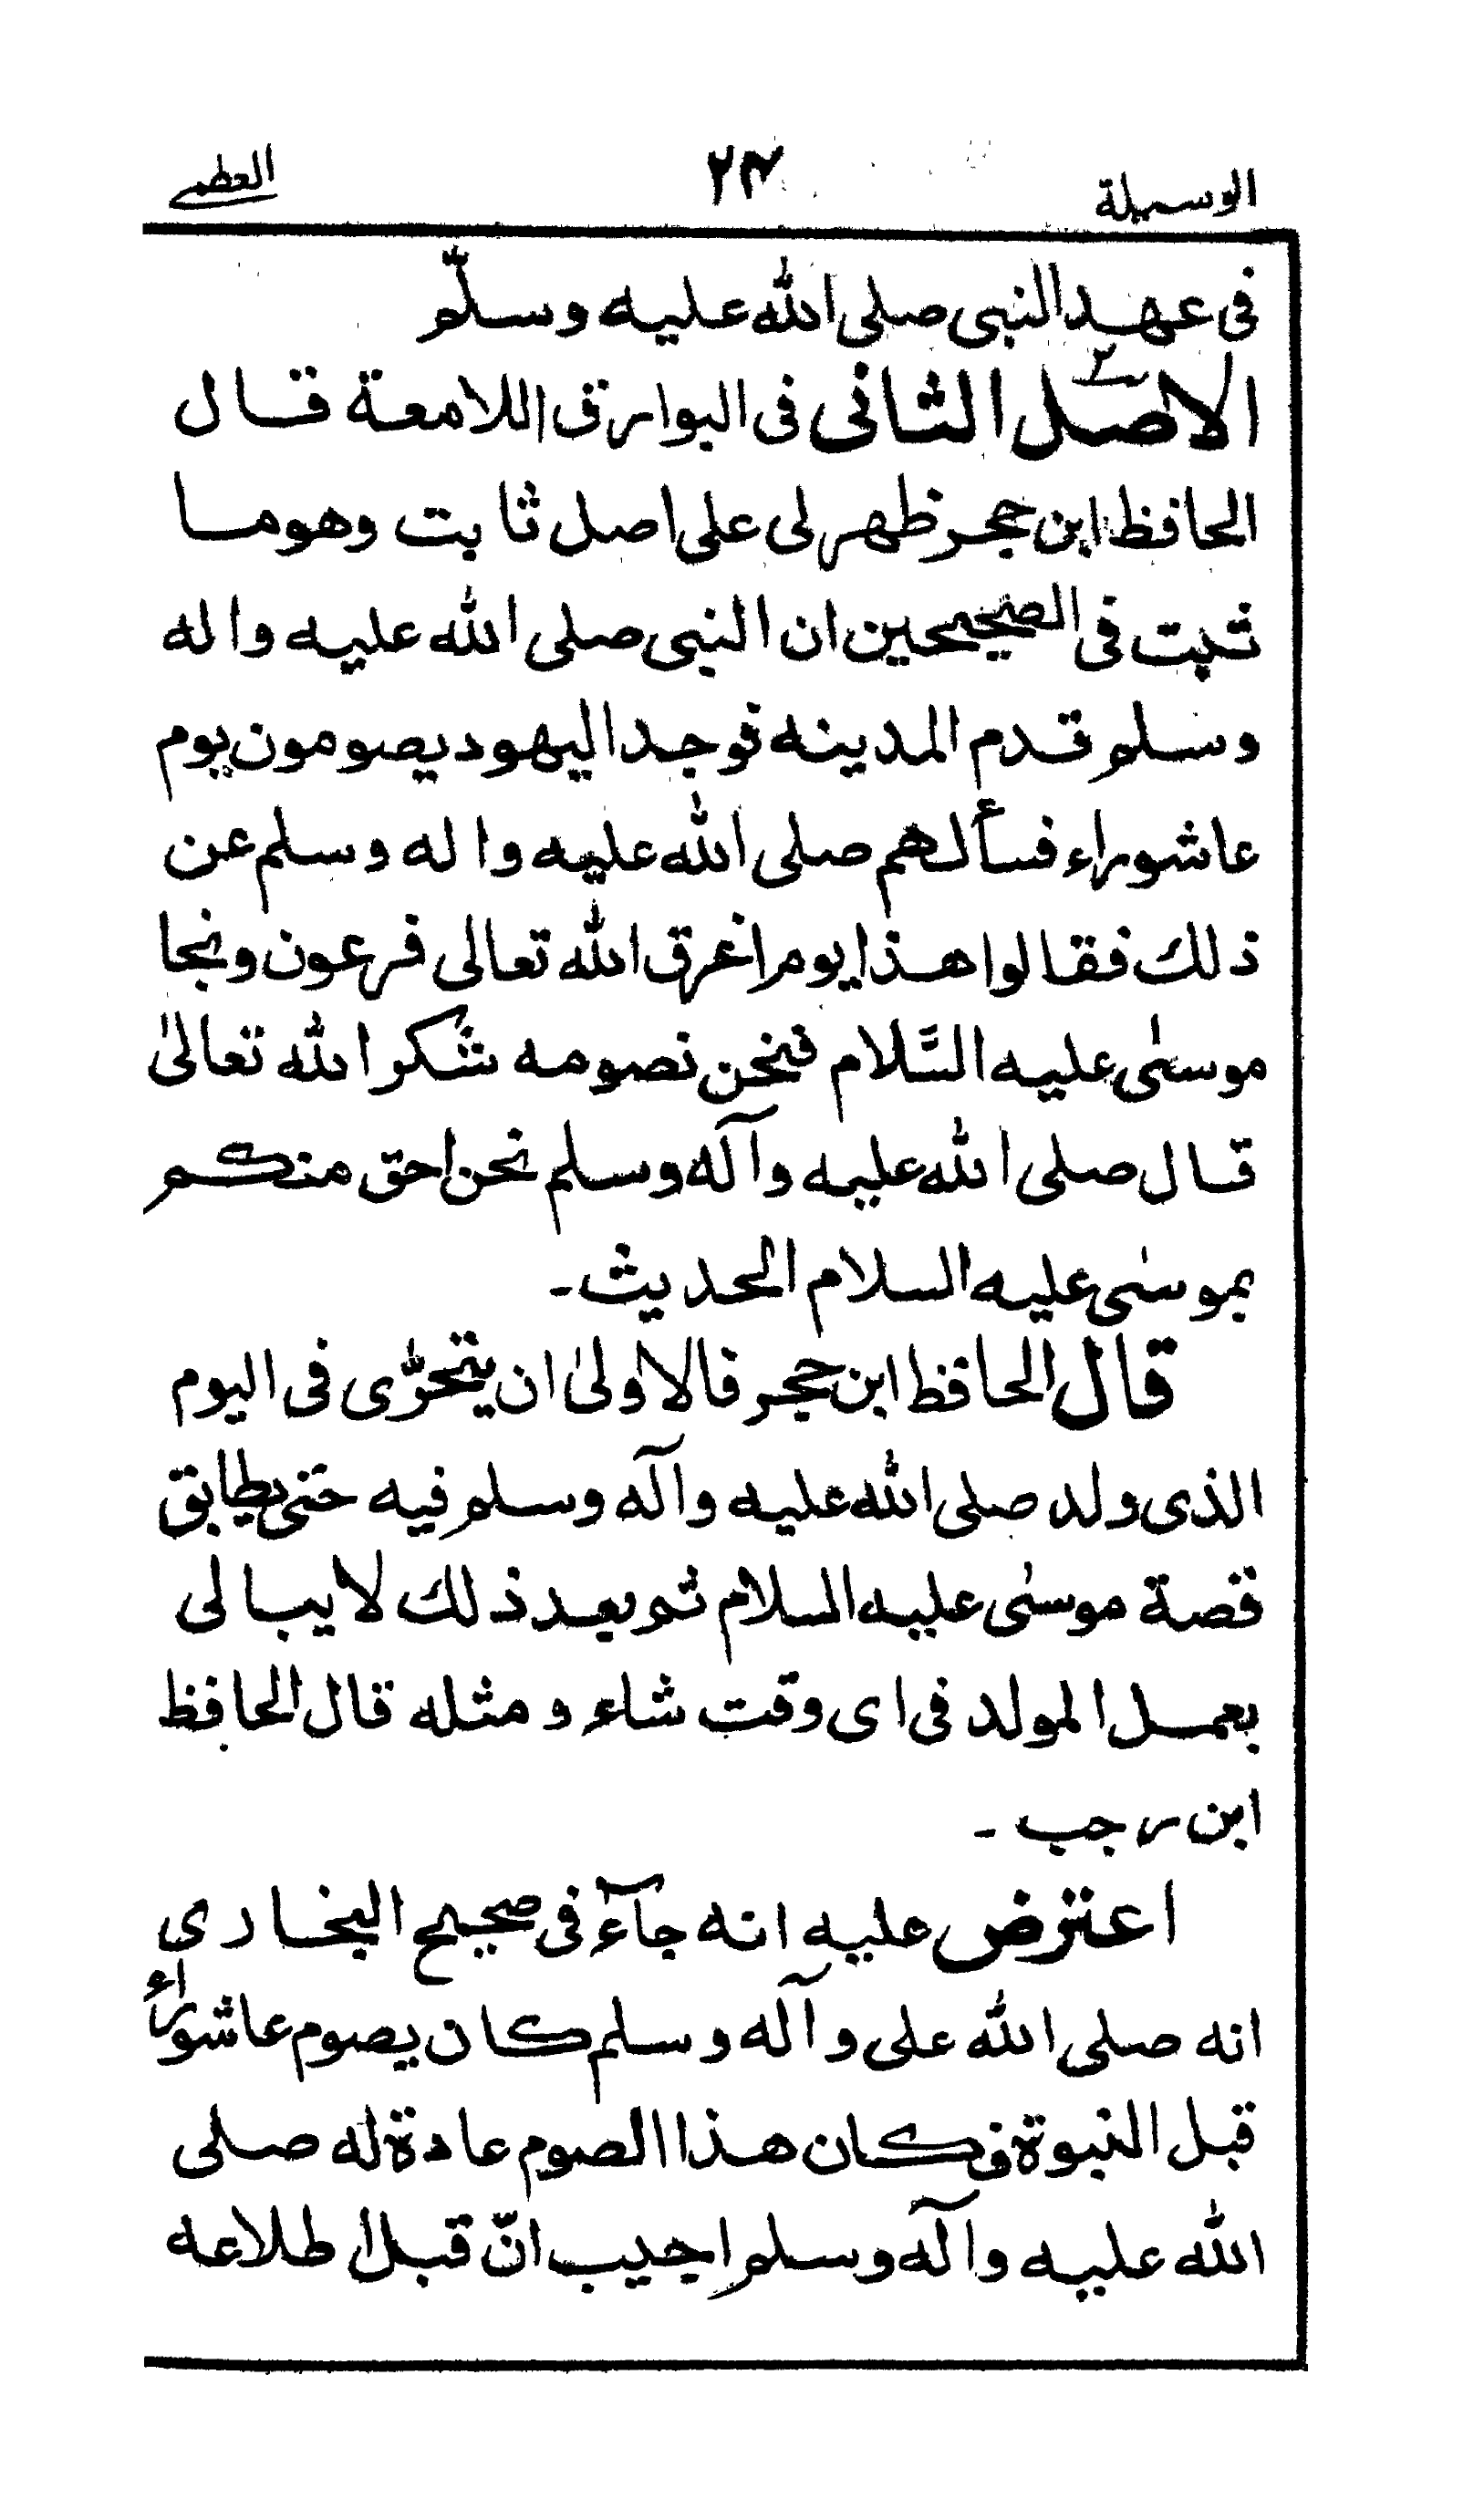 الوسيلة ٢٣ العظمى
فى عهد النبى صلى الله عليه وسلّم
الاصل الثانى فى البوارق اللامعة قال
الحافظ ابن حجر ظهر لى على اصل ثابت وهو ما
ثبت فى الصحيحين ان النبى صلى الله عليه واله
وسلم قدم المدينه فوجد اليهود يصومون يوم
عاشوراء فسألهم صلى الله عليه واله وسلم عن
ذلك فقالوا هذا يوم اغرق الله تعالى فرعون ونجا
موسىٰ عليه السَّلام فنحن نصومه شكر الله تعالىٰ
قال صلى الله عليه وآله وسلم نحن احق منكم
بموسىٰ عليه السلام الحديث۔
قال الحافظ ابن حجر فالاولىٰ ان يتحرّى فى اليوم
الذى ولد صلى الله عليه وآله وسلم فيه حتى يطابق
قصة موسىٰ عليه السلام ثم بعد ذلك لا يبالى
بعمل المولد فى اى وقت شاء ومثله قال الحافظ
ابن رجب۔
اعترض عليه انه جآء فى صحيح البخارى
انه صلى الله على وآله وسلم كان يصوم عاشوراء
قبل النبوة فكان هذا الصوم عادة له صلى
الله عليه وآله وسلم اجيب انّ قبل اطلاعه